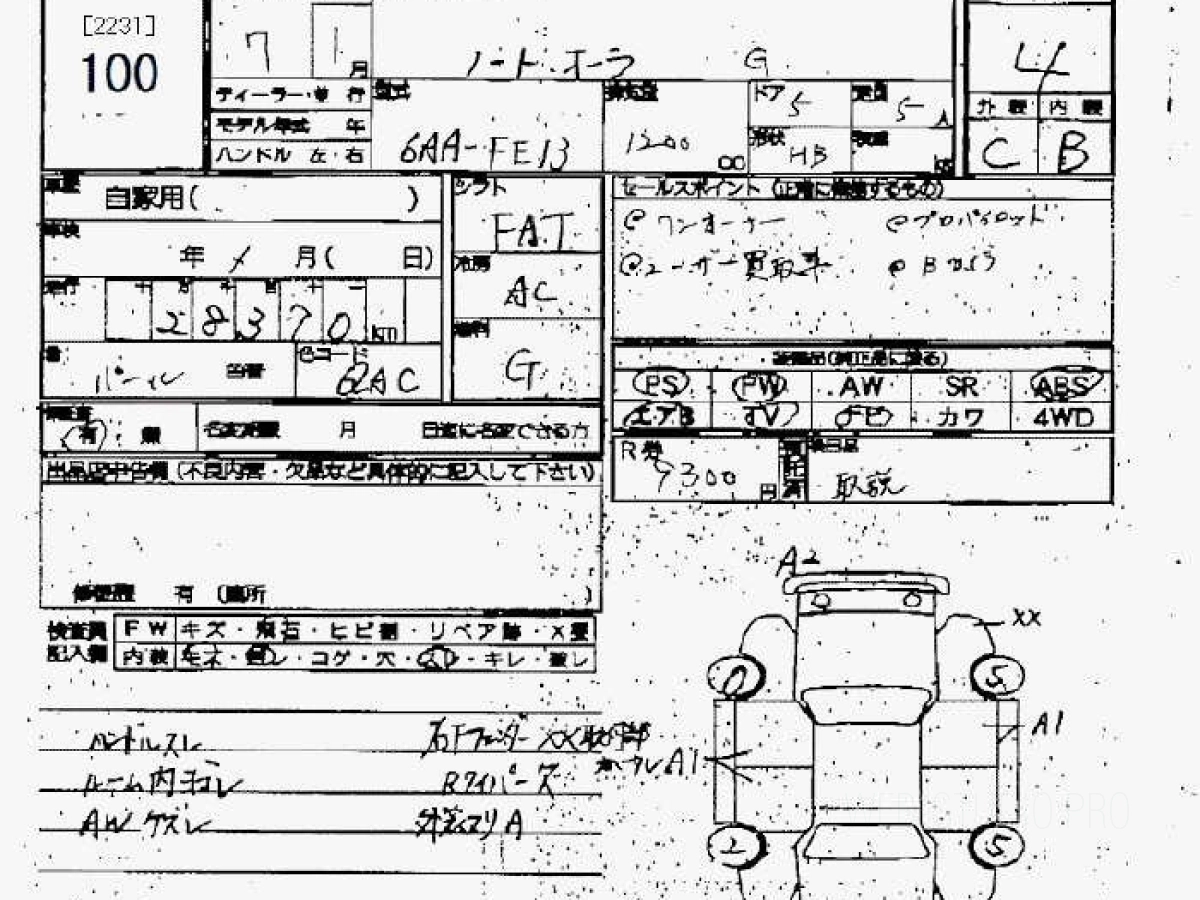 [2231]
100
7 1 月
ノート オーラ G
4
ディーラー・並 行
型式
排気量
ドア 5
定員 5 人
外装 内装
モデル年式 年
6AA-FE13
1200 cc
形状 HB
積載 kg
C B
ハンドル 左・右
車歴 自家用( )
シフト
FAT
セールスポイント (正常に作動するもの)
@ワンオーナー @プロパイロット
車検 年 / 月( 日)
冷房
AC
@ユーザー買取車 @Bカメラ
走行 十 万 千 百 十 一
2 8 3 7 0 km
燃料
G
色 パール 色替
色コード
QAC
装備品(純正品に限る)
PS PW AW SR ABS
エアB TV ナビ カワ 4WD
保証書 有・無
名変期限 月 日迄に名変できる方
R券 9300 円
預託済
後日品
取説
出品店申告欄(不良内容・欠品など具体的に記入して下さい)
修復歴 有 (箇所 )
検査員記入欄
FW キズ・飛石・ヒビ割・リペア跡・X要
内装 キレ・コゲ・穴・キレ・激し
ハンドルスレ 右Fフェンダー XX取付部
ルーム内ヨゴレ Rワイパーズ
AWケズレ A
A2
XX
0 5
A1
A1
2 5